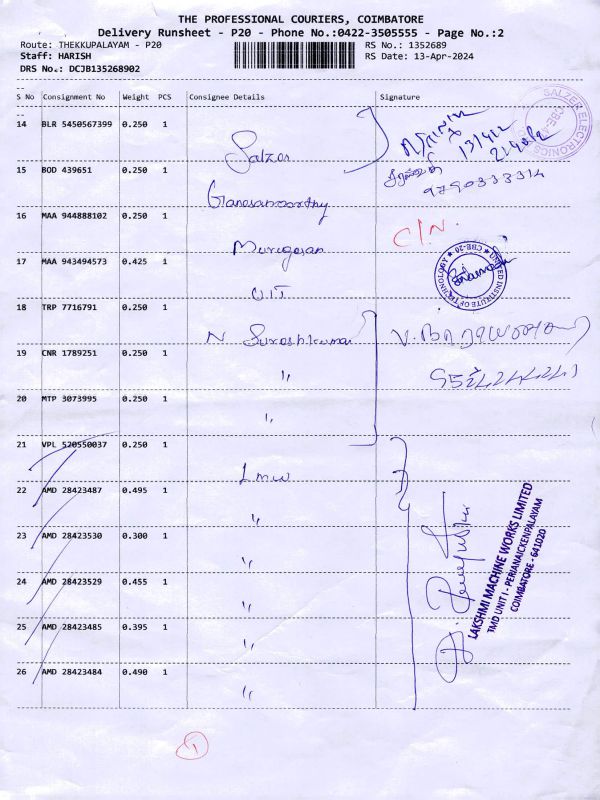 THE PROFESSIONAL COURIERS, COIMBATORE
Delivery Runsheet - P20 - Phone No.:0422-3505555 - Page No.:2
Route: THEKKUPALAYAM - P20 RS No.: 1352689
Staff: HARISH RS Date: 13-Apr-2024
DRS No.: DCJB135268902
S No Consignment No Weight PCS Consignee Details Signature
14 BLR 5450567399 0.250 1 Salzer
SALZER ELECTRONICS
15 BOD 439651 0.250 1 Ganesamoorthy
9790333314
16 MAA 944888102 0.250 1 Murugesan
C/N.
17 MAA 943494573 0.425 1 UIT
UNITED INSTITUTE OF TECHNOLOGY CBE-20
18 TRP 7716791 0.250 1 N Sureshkumar
19 CNR 1789251 0.250 1 "
20 MTP 3073995 0.250 1 "
21 VPL 520550037 0.250 1 Lmw
22 AMD 28423487 0.495 1 "
23 AMD 28423530 0.300 1 "
24 AMD 28423529 0.455 1 "
25 AMD 28423485 0.395 1 "
26 AMD 28423484 0.490 1 "
LAKSHMI MACHINE WORKS LIMITED
TMD UNIT I - PERIANAICKENPALAYAM
COIMBATORE - 641020
1